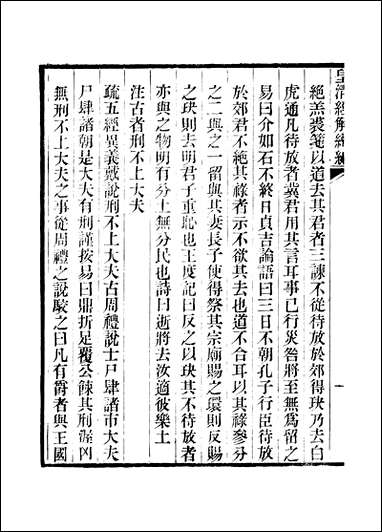 皇清經解續編
絶羔裘箋以道去其君者三諫不從待放於郊得玦乃去白
虎通凡待放者冀君用其言耳事已行災咎將至無爲留之
易曰介如石不終日貞吉論語曰三日不朝孔子行臣待放
於郊君不絶其祿者示不欲其去也道不合耳以其祿參分
之二與之一留與其妻長子使得祭其宗廟賜之環則反賜
之玦則去明君子重恥也王度記曰反之以玦其不待放者
亦與之物明有分土無分民也詩曰逝將去汝適彼樂土
注古者刑不上大夫
疏五經異義戴說刑不上大夫古周禮說士尸肆諸市大夫
尸肆諸朝是大夫有刑謹按易曰鼎折足覆公餗其刑渥凶
無刑不上大夫之事從周禮之說駮之曰凡有爵者與王國